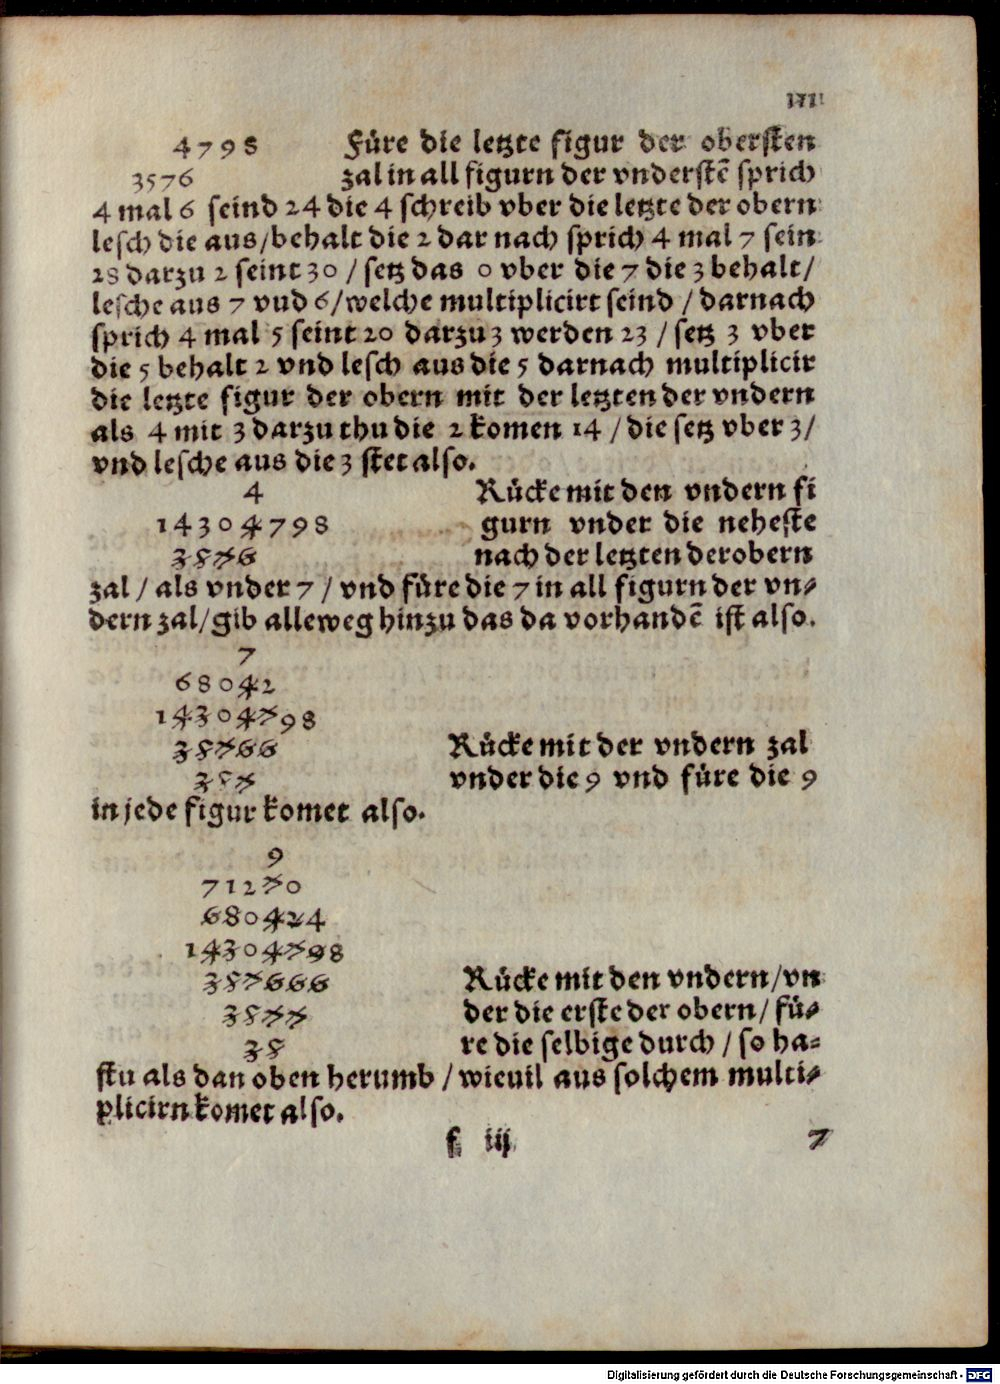 4798 Füre die letzte figur der obersten
3576 zal in all figurn der vnderstē sprich
4 mal 6 seind 24 die 4 schreib vber die letzte der obern
lesch die aus/behalt die 2 dar nach sprich 4 mal 7 sein
28 darzu 2 seint 30 / setz das 0 vber die 7 die 3 behalt/
lesche aus 7 vud 6/welche multiplicirt seind / darnach
sprich 4 mal 5 seint 20 darzu 3 werden 23 / setz 3 vber
die 5 behalt 2 vnd lesch aus die 5 darnach multiplicir
die letzte figur der obern mit der letzten der vndern
als 4 mit 3 darzu thu die 2 komen 14 / die setz vber 3/
vnd lesche aus die 3 stet also.
4 Rücke mit den vndern fi
14304798 gurn vnder die neheste
3576 nach der letzten der obern
zal / als vnder 7 / vnd füre die 7 in all figurn der vn-
dern zal/gib alleweg hinzu das da vorhandē ist also.
7
68042
14304798
35766 Rücke mit der vndern zal
357 vnder die 9 vnd füre die 9
in jede figur komet also.
9
71270
680424
14304798
357666 Rücke mit den vndern/vn
3577 der die erste der obern/ fü-
35 re die selbige durch / so ha-
stu als dan oben herumb / wieuil aus solchem multi-
plicirn komet also.
f iij 7
Digitalisierung gefördert durch die Deutsche Forschungsgemeinschaft - DFG